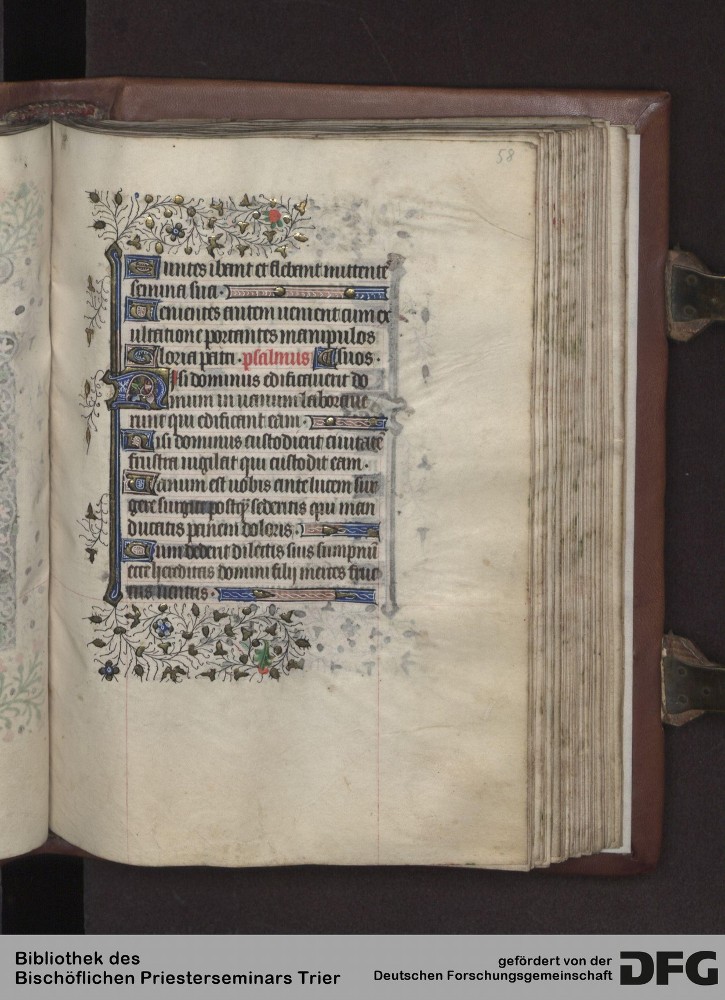 58
Euntes ibant et flebant mittente
semina sua ·
Uenientes autem uenient cum ex
ultatione portantes manipulos
Gloria patri · psalmus suos ·
Nisi dominus edificauerit do
mum in uanum laboraue
runt qui edificant eam ·
Nisi dominus custodierit ciuitate
frustra uigilat qui custodit eam ·
Uanum est uobis ante lucem sur
gere surgite postq̄ sederitis qui man
ducatis panem doloris ·
Cum dederit dilectis suis sumpnū
ecce hereditas domini filij merces fruc
tus uentris ·
Bibliothek des
Bischöflichen Priesterseminars Trier
gefördert von der
Deutschen Forschungsgemeinschaft
DFG